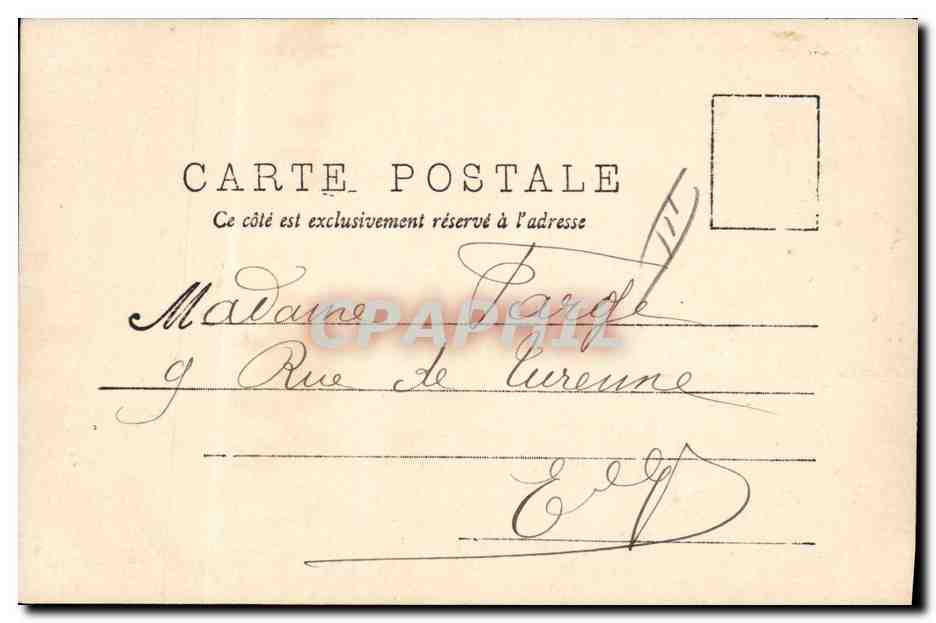 CARTE POSTALE
Ce côté est exclusivement réservé à l'adresse
Madame Farge
9 Rue de Turenne
CPAPHIL